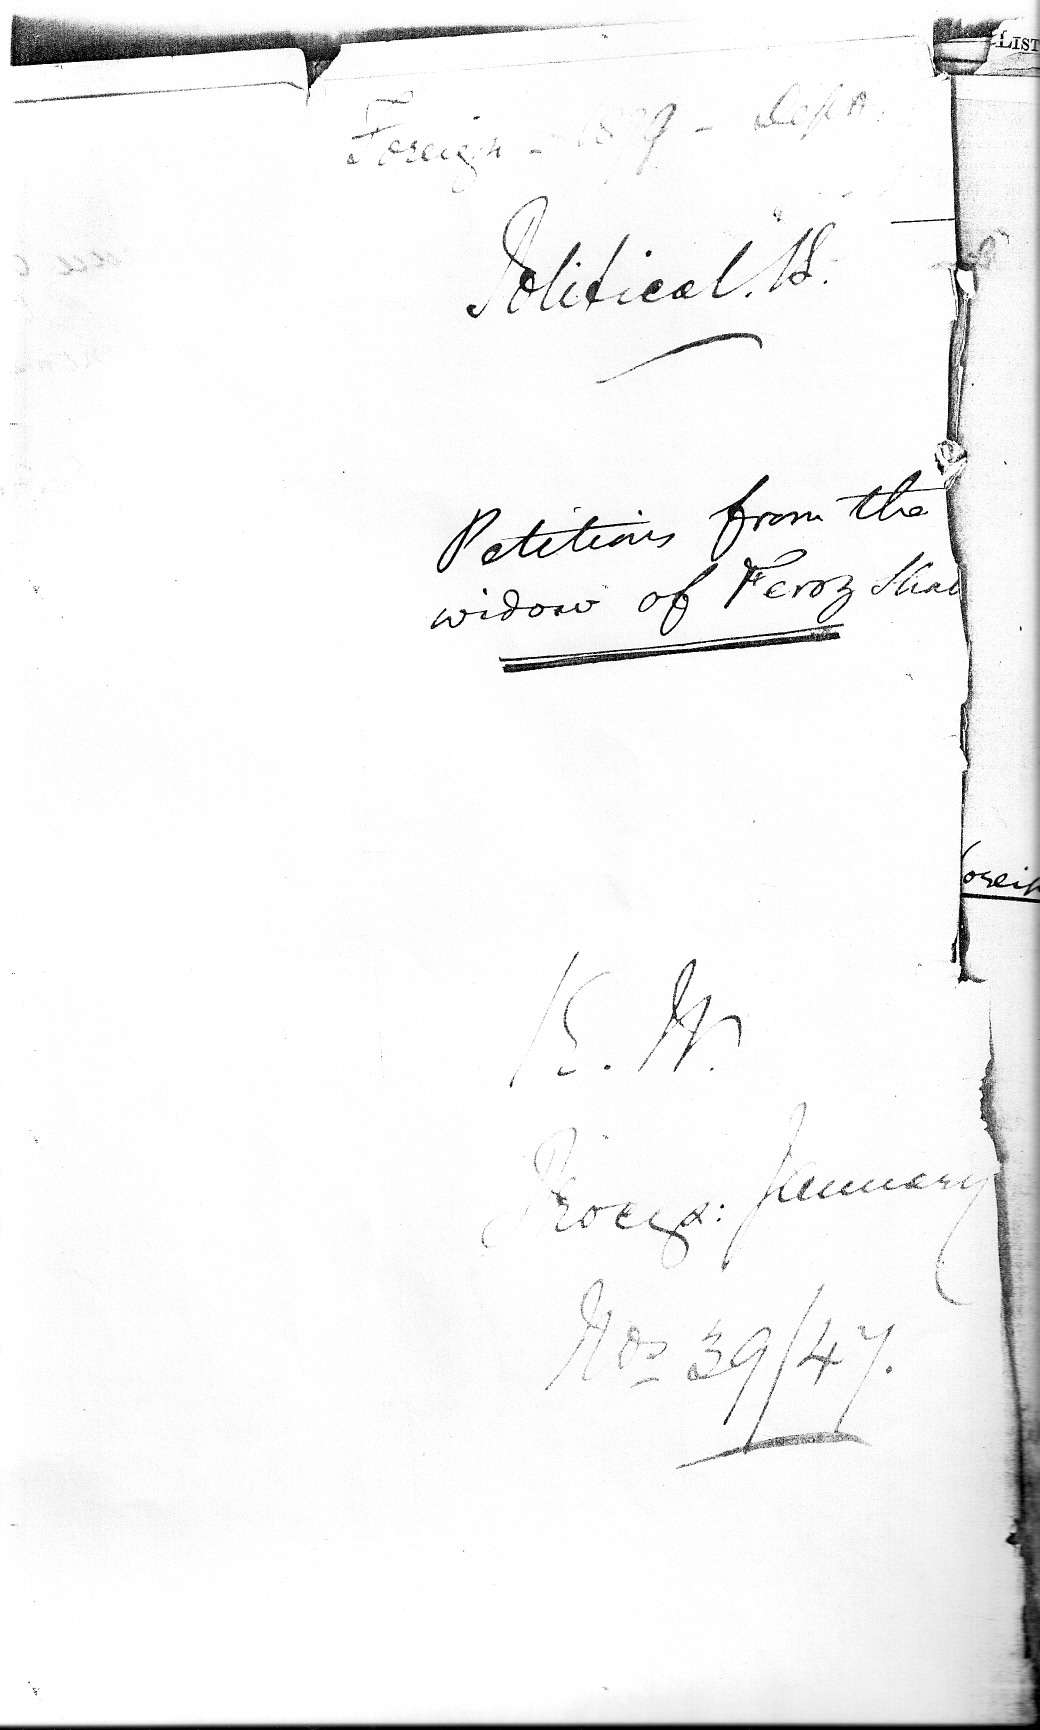 Foreign - 1879 - Dept.
LIST
Political. B.
Petitions from the
widow of Feroz Shah
oreig
K. W.
Procgs: January
Nos 39/47.